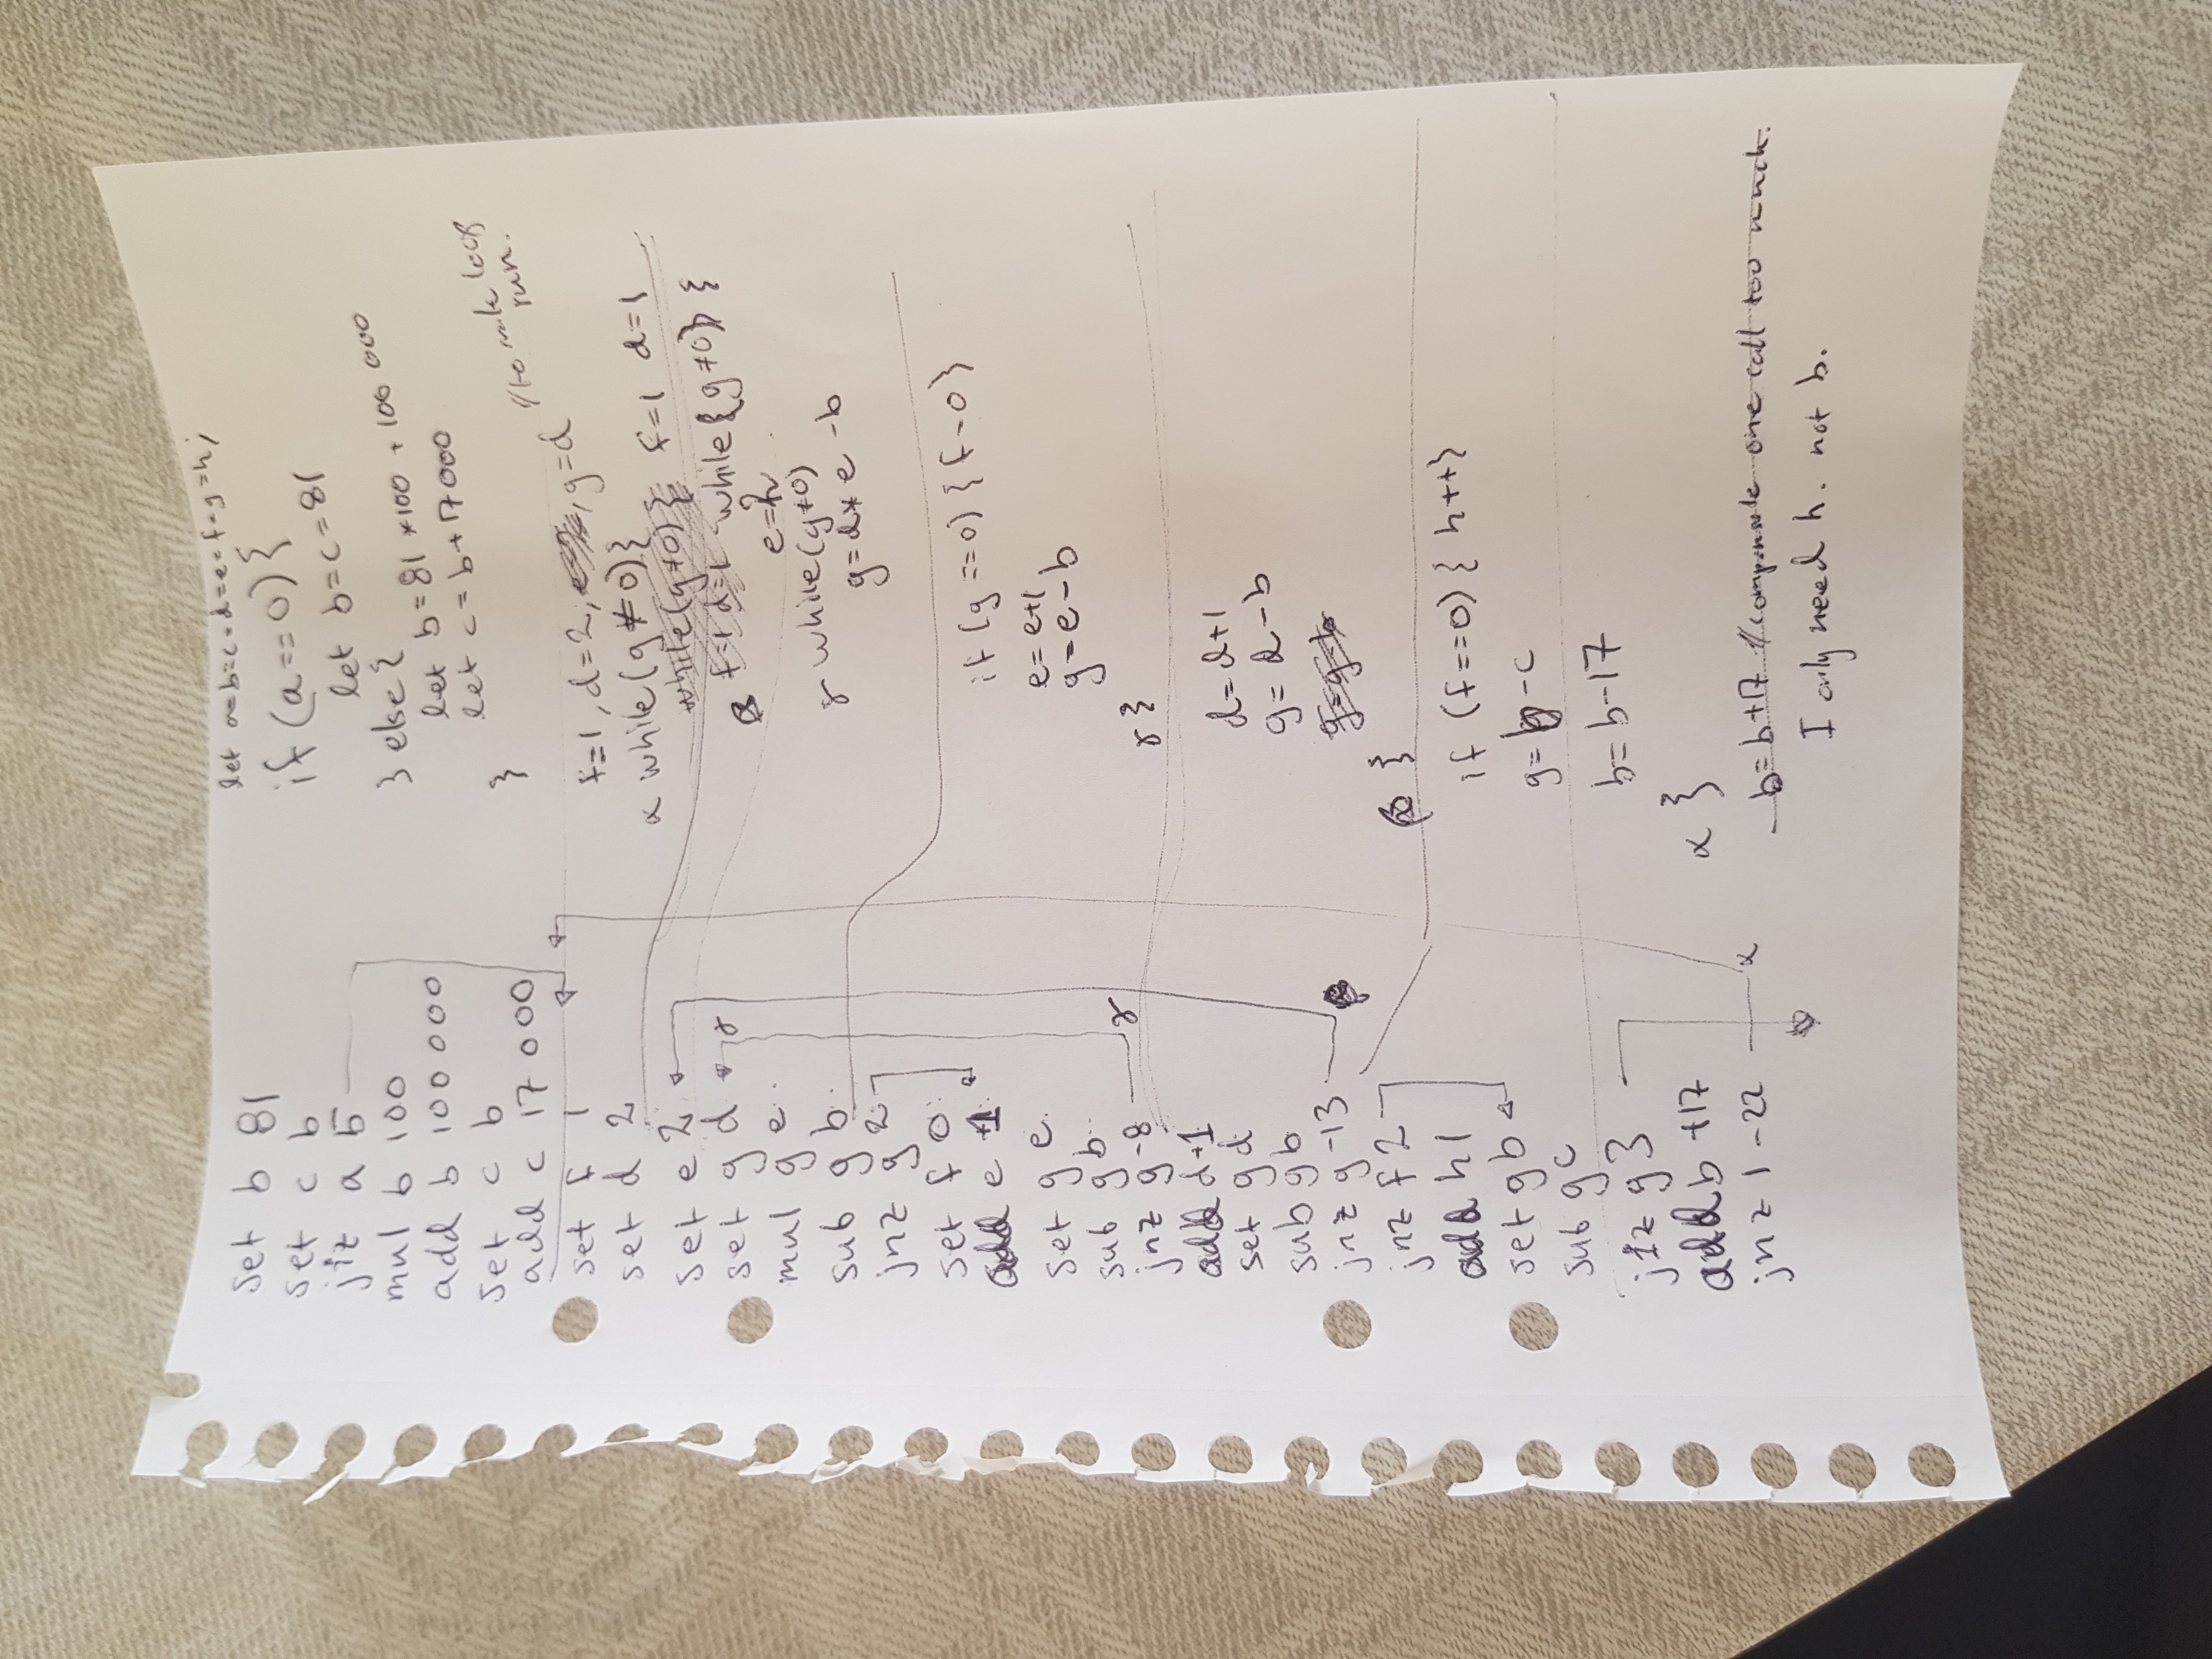 set b 81
set c b
jiz a 5
mul b 100
add b 100 000
set c b
add c 17 000
set f 1
set d 2
set e 2
set g d γ
mul g e
sub g b
jnz g 2
set f 0
add e +1
set g e
sub g b
jnz g -8 γ
add d +1
set g d
sub g b
jnz g -13 β
jnz f 2
add h 1
set g b
sub g c
jiz g 3
add b +17
jnz 1 -22 α
let a=b=c=d=e=f=g=h;
if (a==0) {
let b=c=81
} else {
let b=81 *100 + 100 000
let c=b+17000
}
f=1, d=2, , g=d //to make loop
run.
α while(g≠0){
while(g≠0){ f=1 d=1
β f=1 d=1 while(g≠0) {
e=2
γ while(g≠0)
g=d*e-b
if (g==0) {f-0}
e=e+1
g=e-b
γ }
d=d+1
g=d-b
g=g-b
β }
if (f==0) { h++}
g=b-c
b=b-17
α }
b=b+17 //compensate one call too much.
I only need h. not b.